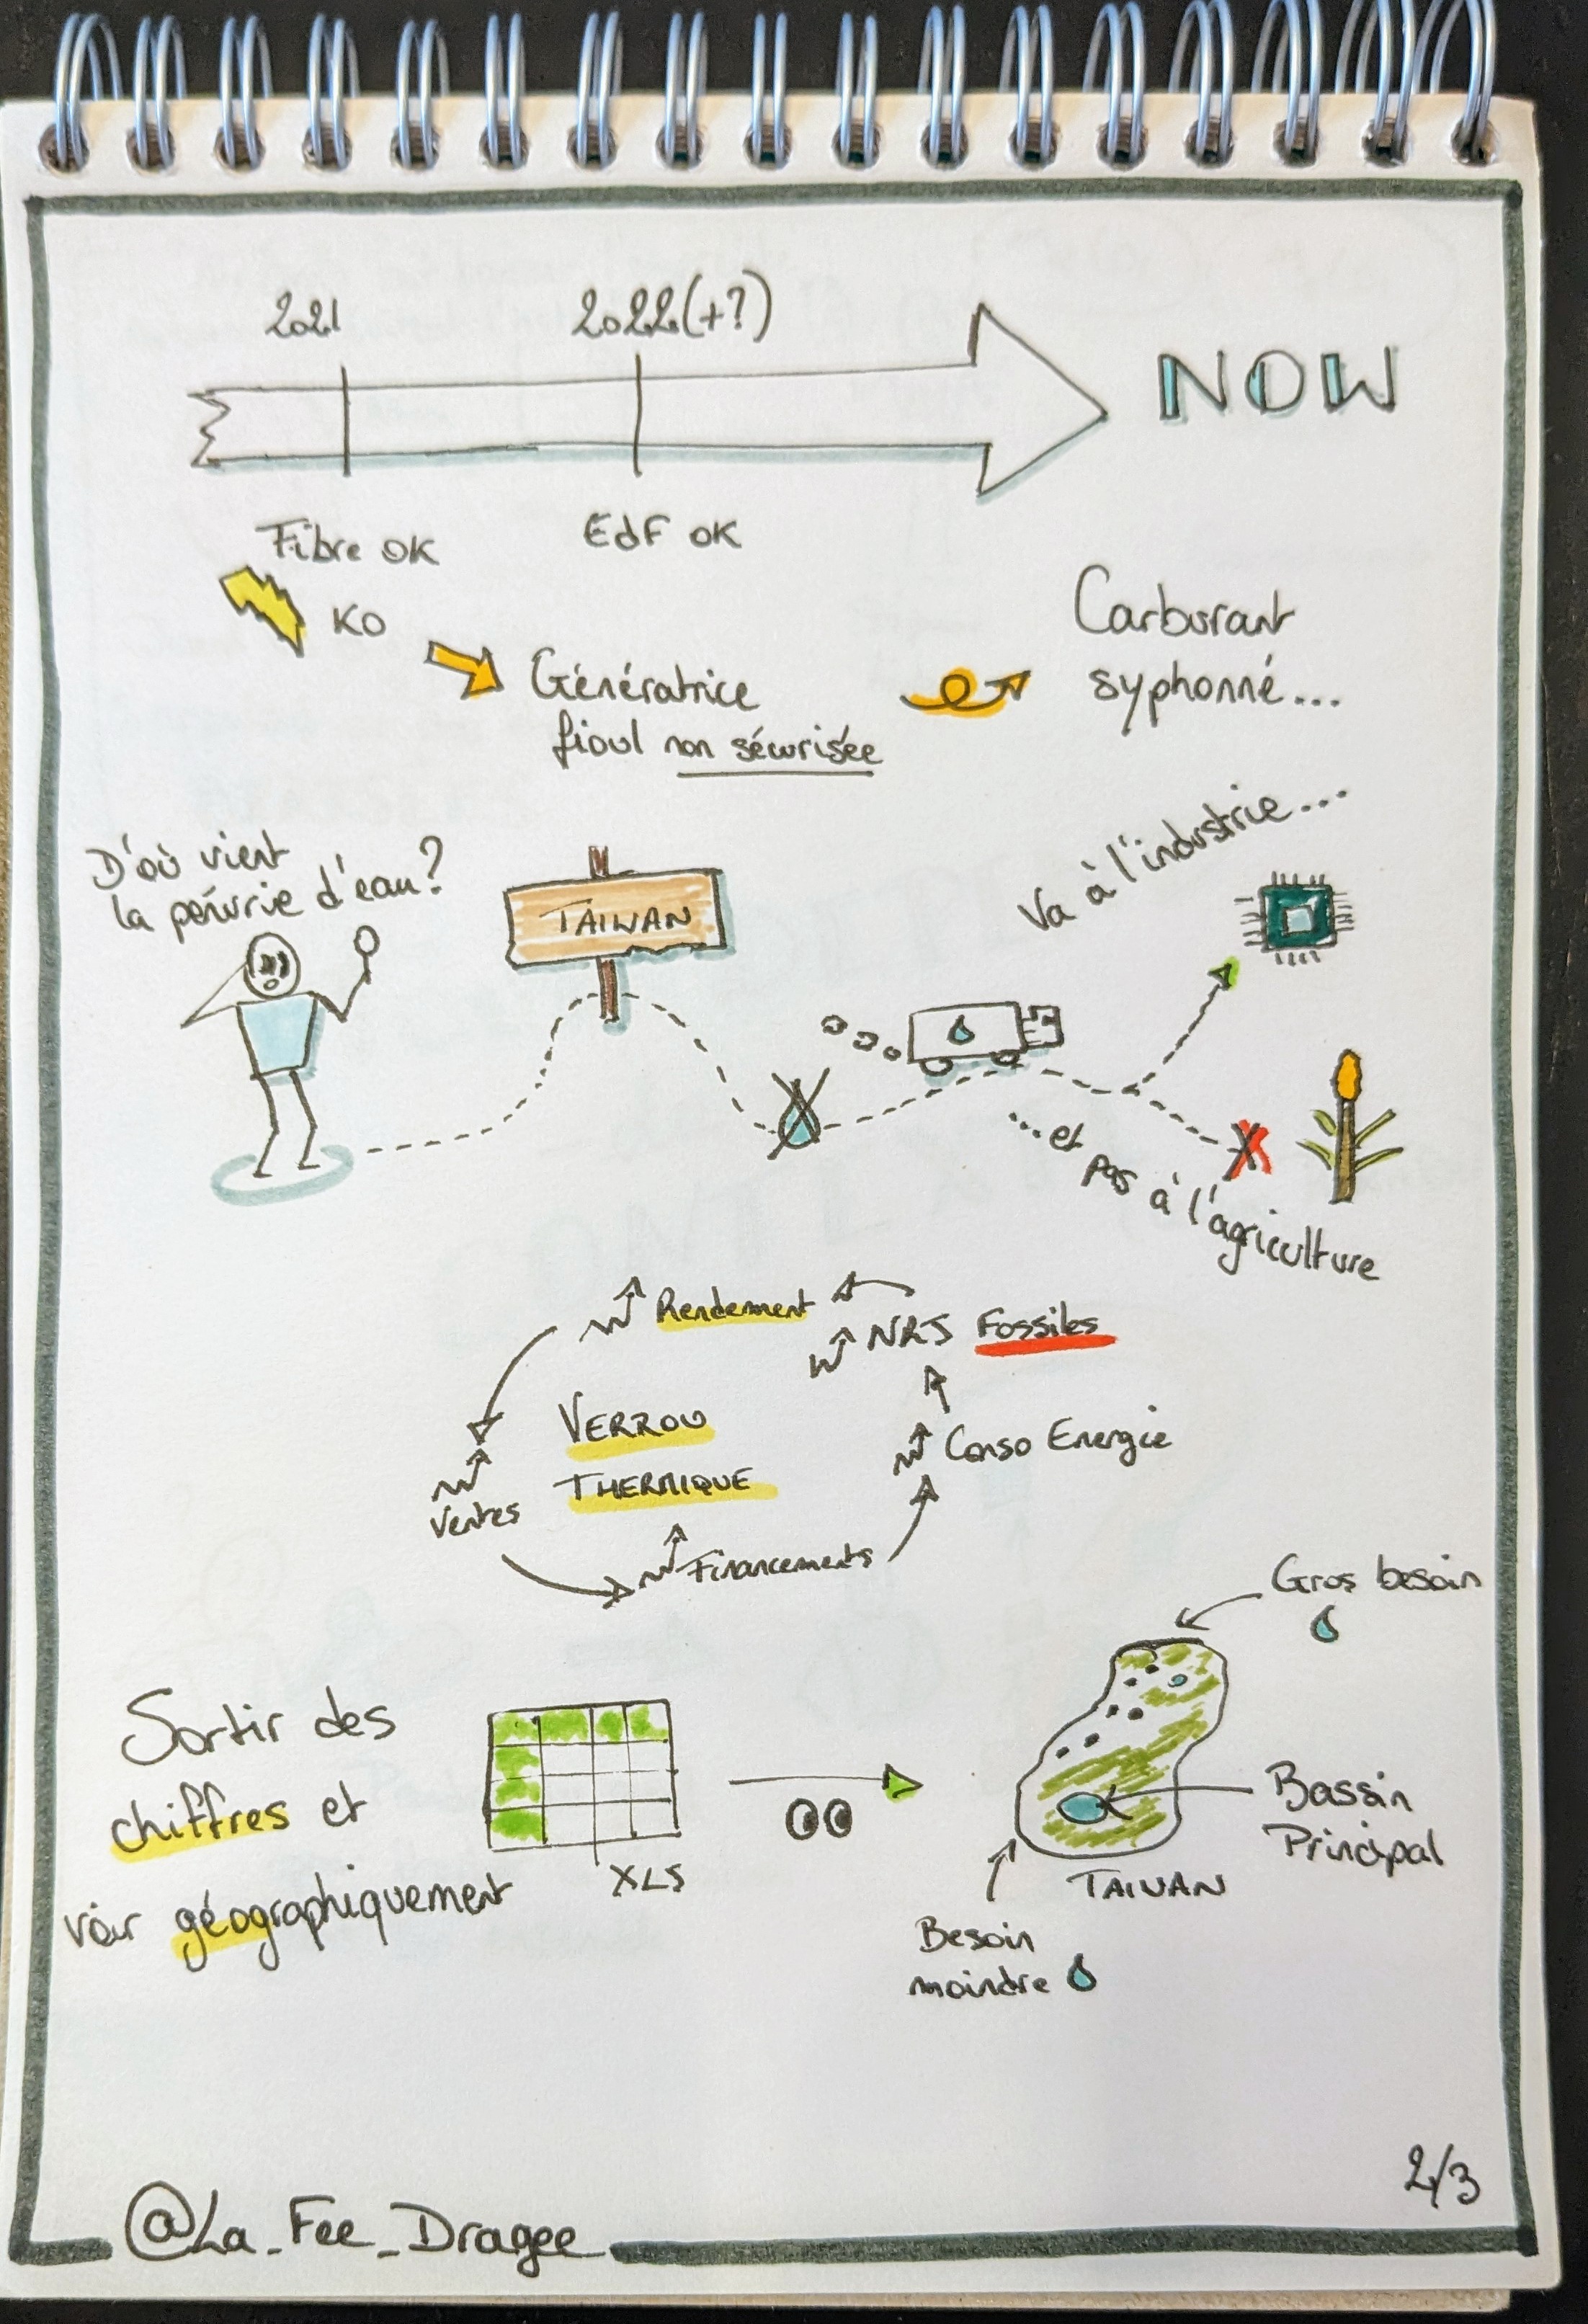 2021
2022(+?)
NOW
Fibre OK
EdF OK
KO
Génératrice
fioul non sécurisée
Carburant
syphonné...
D'où vient
la pénurie d'eau?
TAIWAN
Va à l'industrie...
...et pas à l'agriculture
Rendement
NRJ Fossiles
VERROU
THERMIQUE
Conso Energie
Ventes
Financements
Gros besoin
Sortir des
chiffres et
voir géographiquement
XLS
Bassin
Principal
TAIWAN
Besoin
moindre
2/3
@La_Fee_Dragee